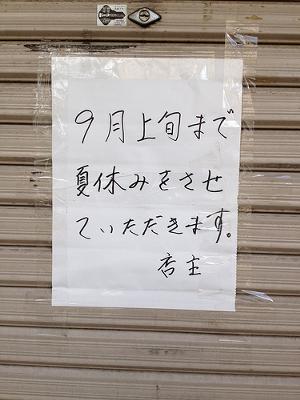 9月上旬まで
夏休みをさせ
ていただきます。
店主